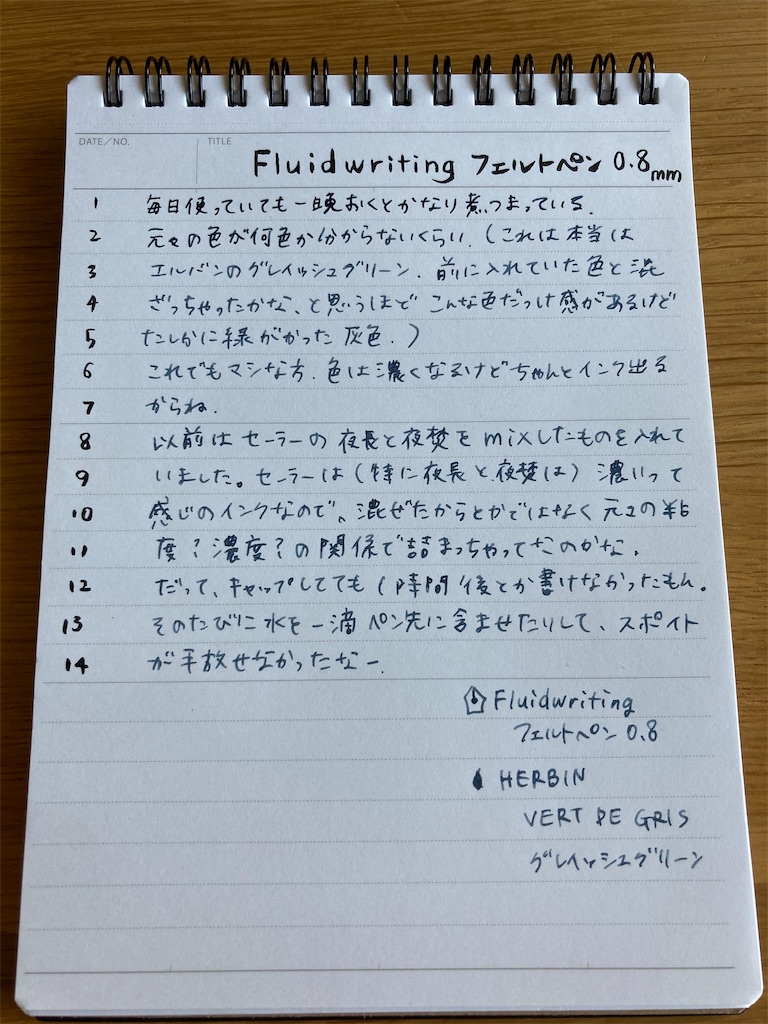 DATE/NO.
TITLE
Fluidwriting フェルトペン 0.8mm
1 毎日使っていても一晩おくとかなり煮つまっている.
2 元々の色が何色か分からないくらい. (これは本当は
3 エルバンのグレイッシュグリーン. 前に入れていた色と混
4 ざっちゃったかな、と思うほど こんな色だっけ感があるけど
5 たしかに緑がかった灰色.)
6 これでもマシな方. 色は濃くなるけどちゃんとインク出る
7 からね.
8 以前はセーラーの夜長と夜焚をmixしたものを入れて
9 いました。セーラーは(特に夜長と夜焚は)濃いって
10 感じのインクなので、混ぜたからとかではなく元々の粘
11 度?濃度?の関係で詰まっちゃってたのかな.
12 だって、キャップしてても1時間後とか書けなかったもん.
13 そのたびに水を一滴ペン先に含ませたりして、スポイト
14 が手放せなかったなー.
Fluidwriting
フェルトペン 0.8
HERBIN
VERT DE GRIS
グレイッシュグリーン